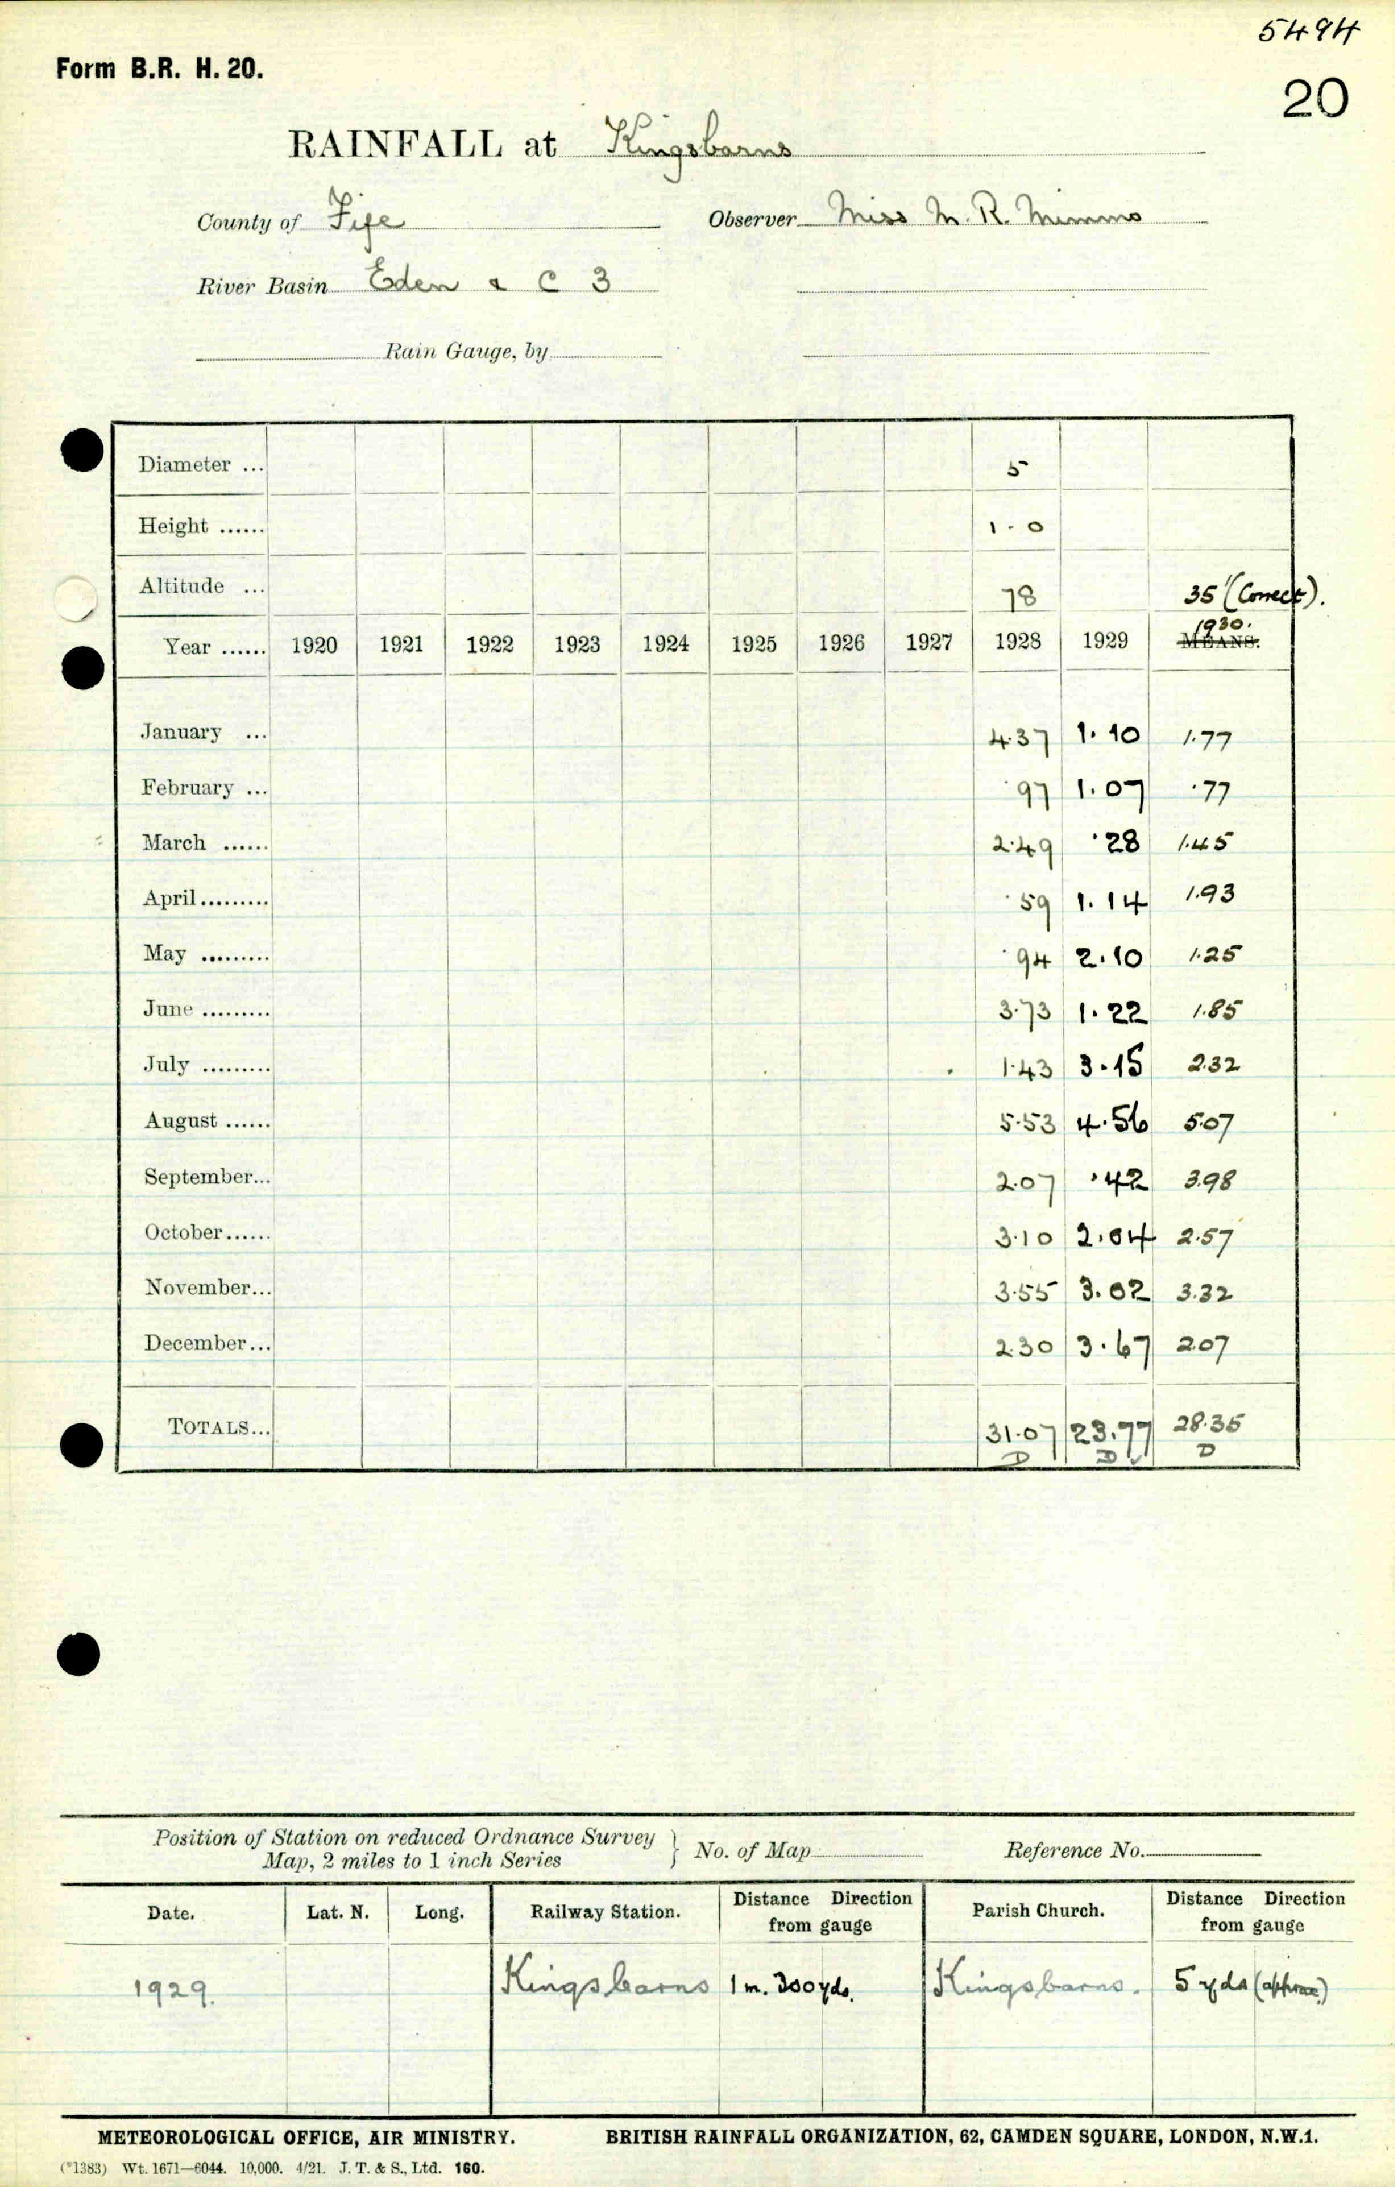 5494
Form B.R. H. 20.
20
RAINFALL at Kingsbarns
County of Fife Observer Miss M. R. Mimmo
River Basin Eden & C 3
Rain Gauge, by
Diameter ... 5
Height ...... 1 - 0
Altitude ... 78 35 (Correct).
1930.
Year ...... 1920 1921 1922 1923 1924 1925 1926 1927 1928 1929 MEANS.
January ... 4.37 1.10 1.77
February ... .97 1.07 .77
March ...... 2.49 .28 1.45
April ......... .59 1.14 1.93
May ......... .94 2.10 1.25
June ......... 3.73 1.22 1.85
July ......... 1.43 3.15 2.32
August ...... 5.53 4.56 5.07
September... 2.07 .42 3.98
October...... 3.10 2.04 2.57
November... 3.55 3.02 3.32
December... 2.30 3.67 2.07
TOTALS... 31.07 23.77 28.35
D D D
Position of Station on reduced Ordnance Survey
Map, 2 miles to 1 inch Series } No. of Map Reference No.
Date. Lat. N. Long. Railway Station. Distance Direction from gauge Parish Church. Distance Direction from gauge
1929. Kingsbarns 1 m. 300 yds. Kingsbarns. 5 yds (approx.)
METEOROLOGICAL OFFICE, AIR MINISTRY. BRITISH RAINFALL ORGANIZATION, 62, CAMDEN SQUARE, LONDON, N.W.1.
(*1383) Wt. 1671—6044. 10,000. 4/21. J. T. & S., Ltd. 160.